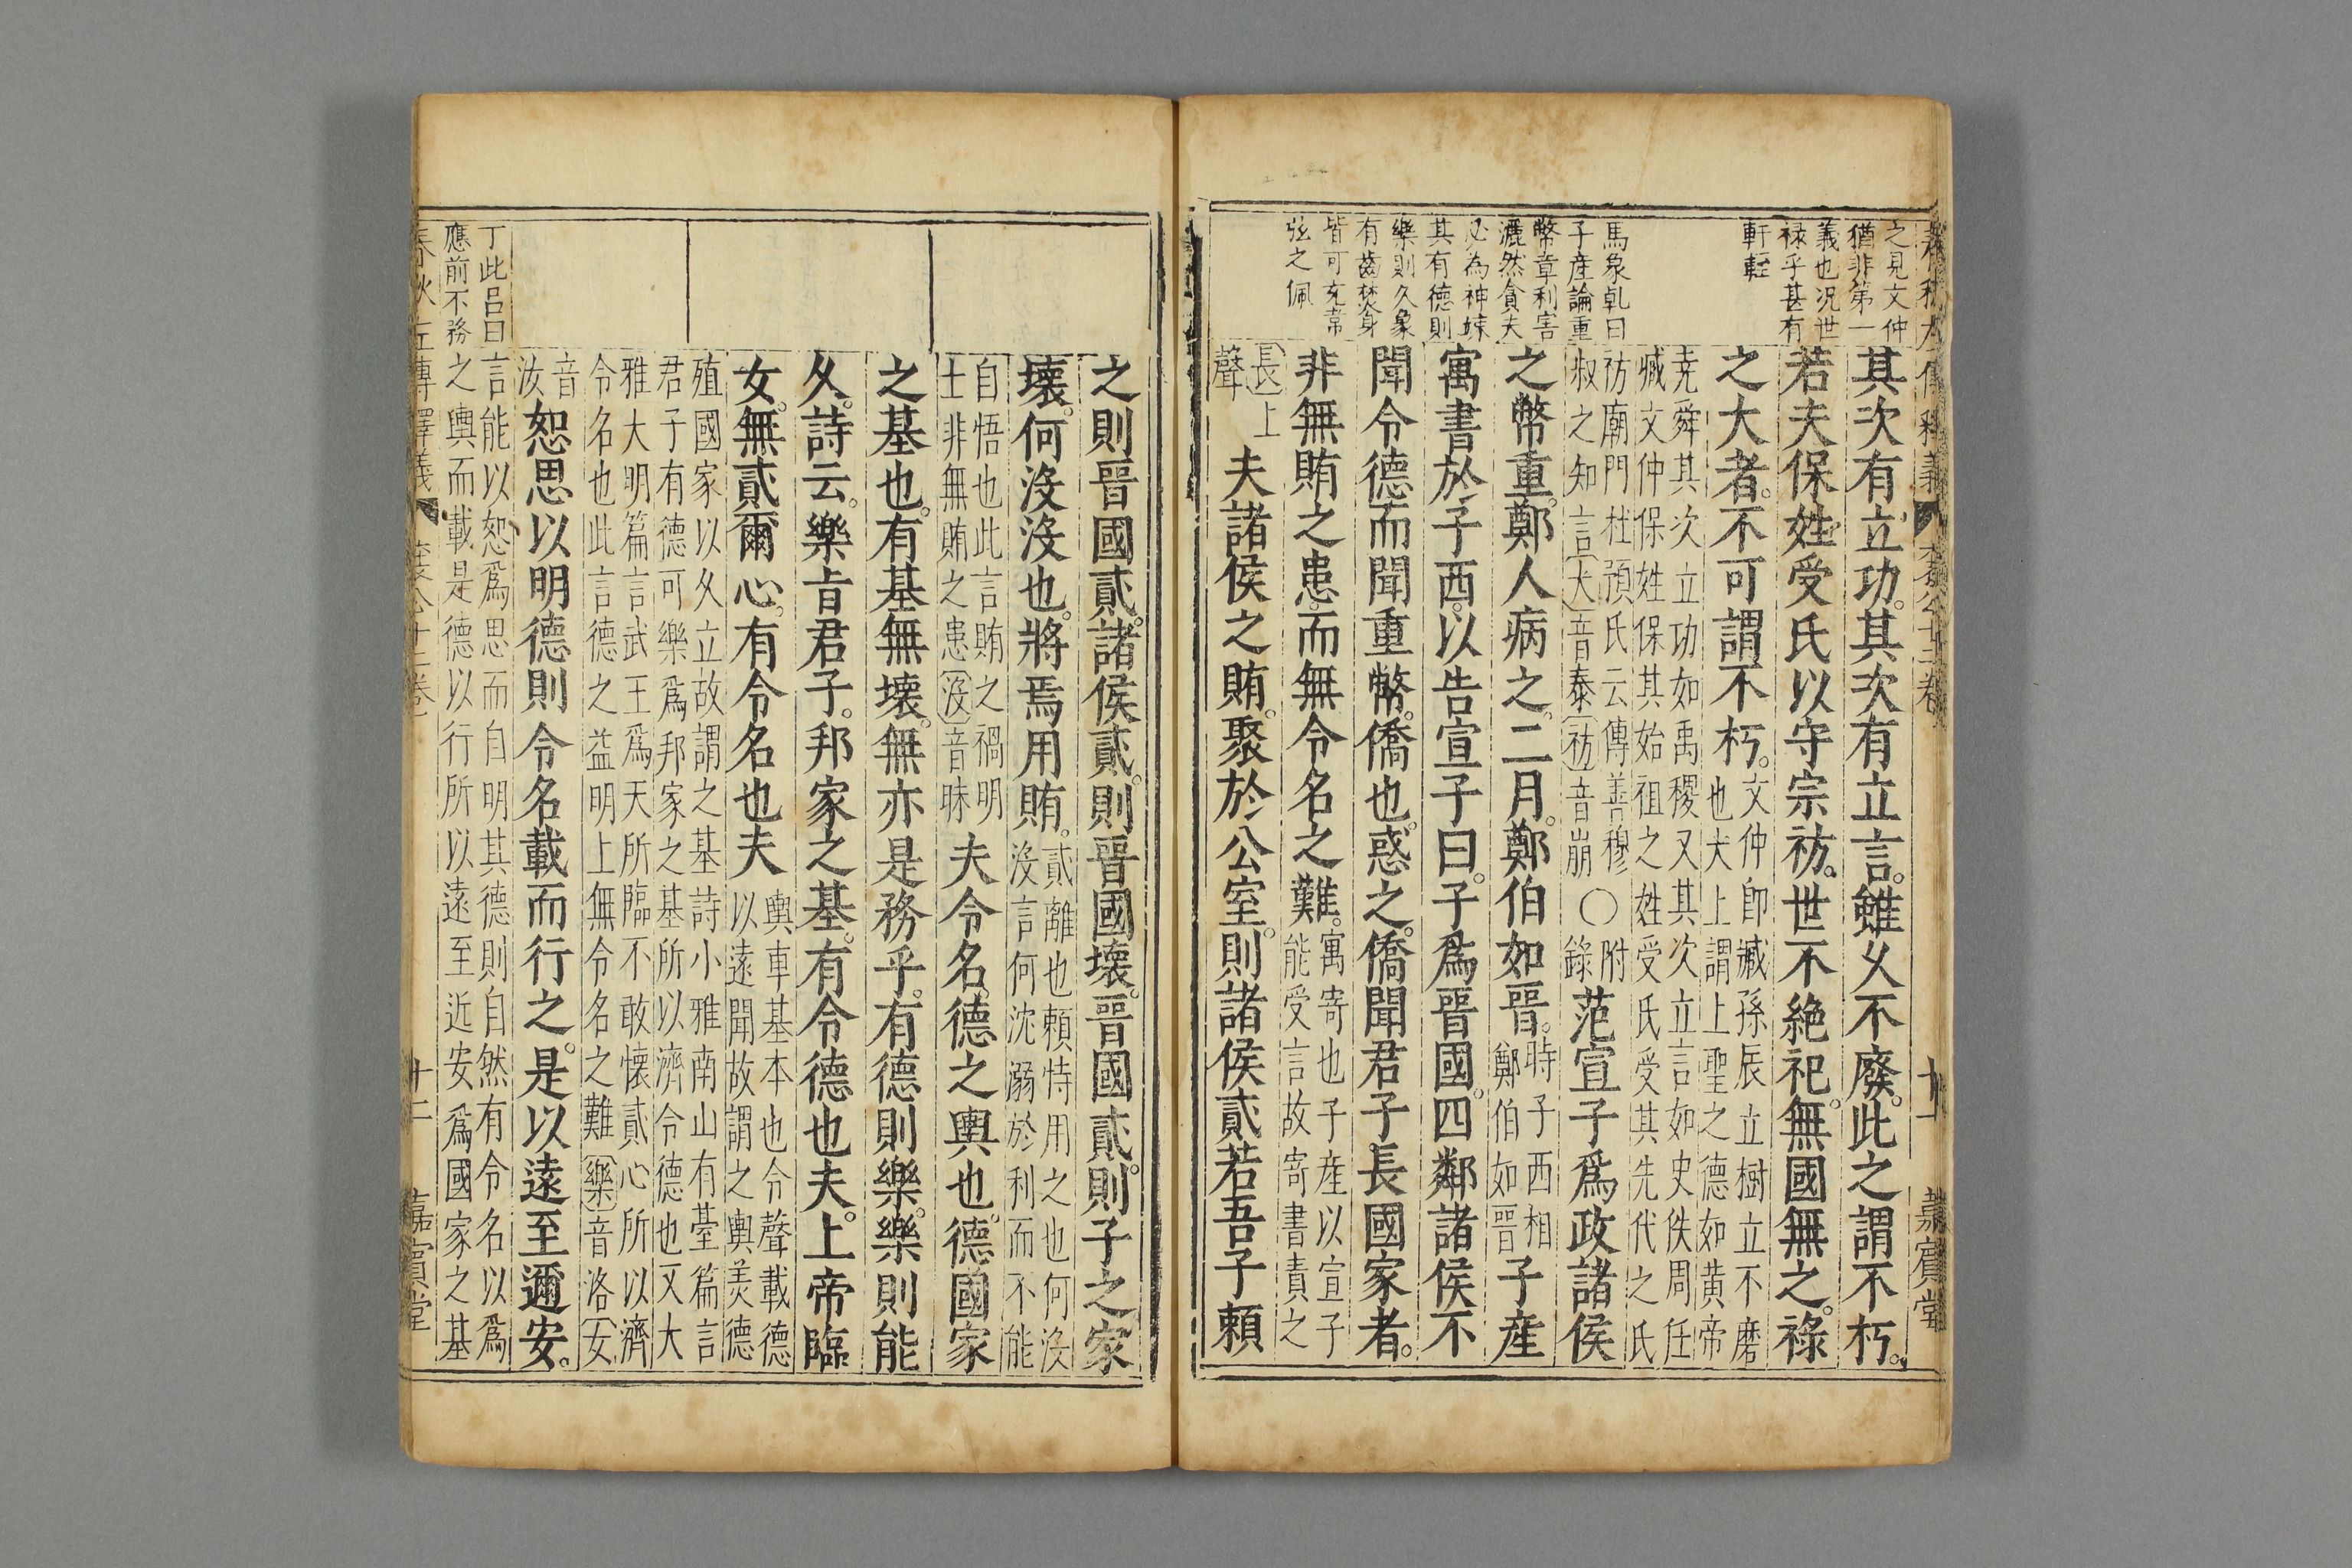 春秋左傳釋義 襄公十二卷 十一 嘉賓堂
之見文仲
猶非第一
義也況世
祿乎甚有
軒輊
馬象乹曰
子産論重
幣章利害
灑然貪夫
必為神竦
其有德則
樂則久象
有齒焚身
皆可充常
弦之佩
其次有立功。其次有立言。雖乆不廢。此之謂不朽。
若夫保姓受氏以守宗祊。世不絶祀。無國無之。祿
之大者。不可謂不朽。
文仲卽臧孫辰立樹立不磨
也大上謂上聖之德如黄帝
尭舜其次立功如禹稷又其次立言如史佚周任
臧文仲保姓保其始祖之姓受氏受其先代之氏
祊廟門杜預氏云傳善穆
叔之知言大音泰祊音崩
〇
附
錄
范宣子爲政諸侯
之幣重。鄭人病之。二月。鄭伯如晋。
時子西相
鄭伯如晋
子産
寓書於子西。以告宣子曰。子爲晋國。四鄰諸侯不
聞令德而聞重幣。僑也惑之。僑聞君子長國家者。
非無賄之患。而無令名之難。
寓寄也子産以宣子
能受言故寄書責之
長上
聲
夫諸侯之賄。聚於公室。則諸侯貳若吾子頼
之則晋國貳。諸侯貳。則晋國壊。晋國貳。則子之家
壊。何沒沒也。將焉用賄。
貳離也頼恃用之也何沒
沒言何沈溺於利而不能
自悟也此言賄之禍明
士非無賄之患沒音昧
夫令名。德之輿也。德。國家
之基也。有基無壊。無亦是務乎。有德則樂。樂則能
乆。詩云。樂旨君子。邦家之基。有令德也夫。上帝臨
女。無貳爾心。有令名也夫
輿車基本也令聲載德
以遠聞故謂之輿羙德
殖國家以乆立故謂之基詩小雅南山有臺篇言
君子有德可樂爲邦家之基所以濟令德也又大
雅大明篇言武王爲天所臨不敢懐貳心所以濟
令名也此言德之益明上無令名之難樂音洛女
音
汝
恕思以明德則令名載而行之。是以遠至邇安。
言能以恕爲思而自明其德則自然有令名以爲
之輿而載是德以行所以遠至近安爲國家之基
丁此吕曰
應前不務
春秋左傳釋義 襄公十二卷 十二 嘉賓堂